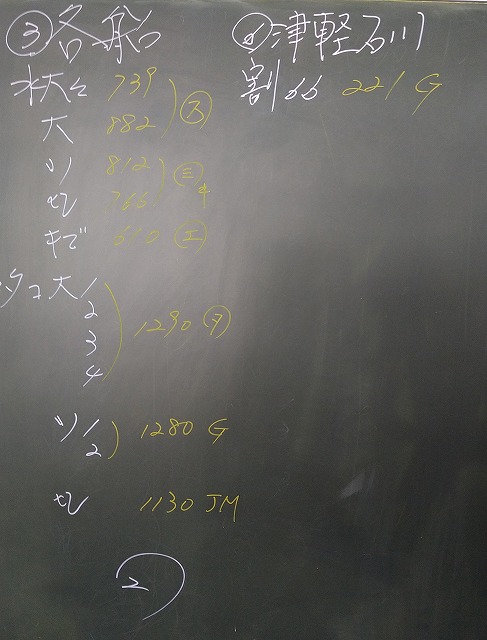 ③各船
水大々 739
大 882 ㋜
ツ 812 ㊂
セ 766 キ
キズ 610 ㋓
タコ大 1
2
3 1290 ㋟
4
ツ 1
2 1280 G
セ 1130 JM
2
津軽石川
割66 221 G